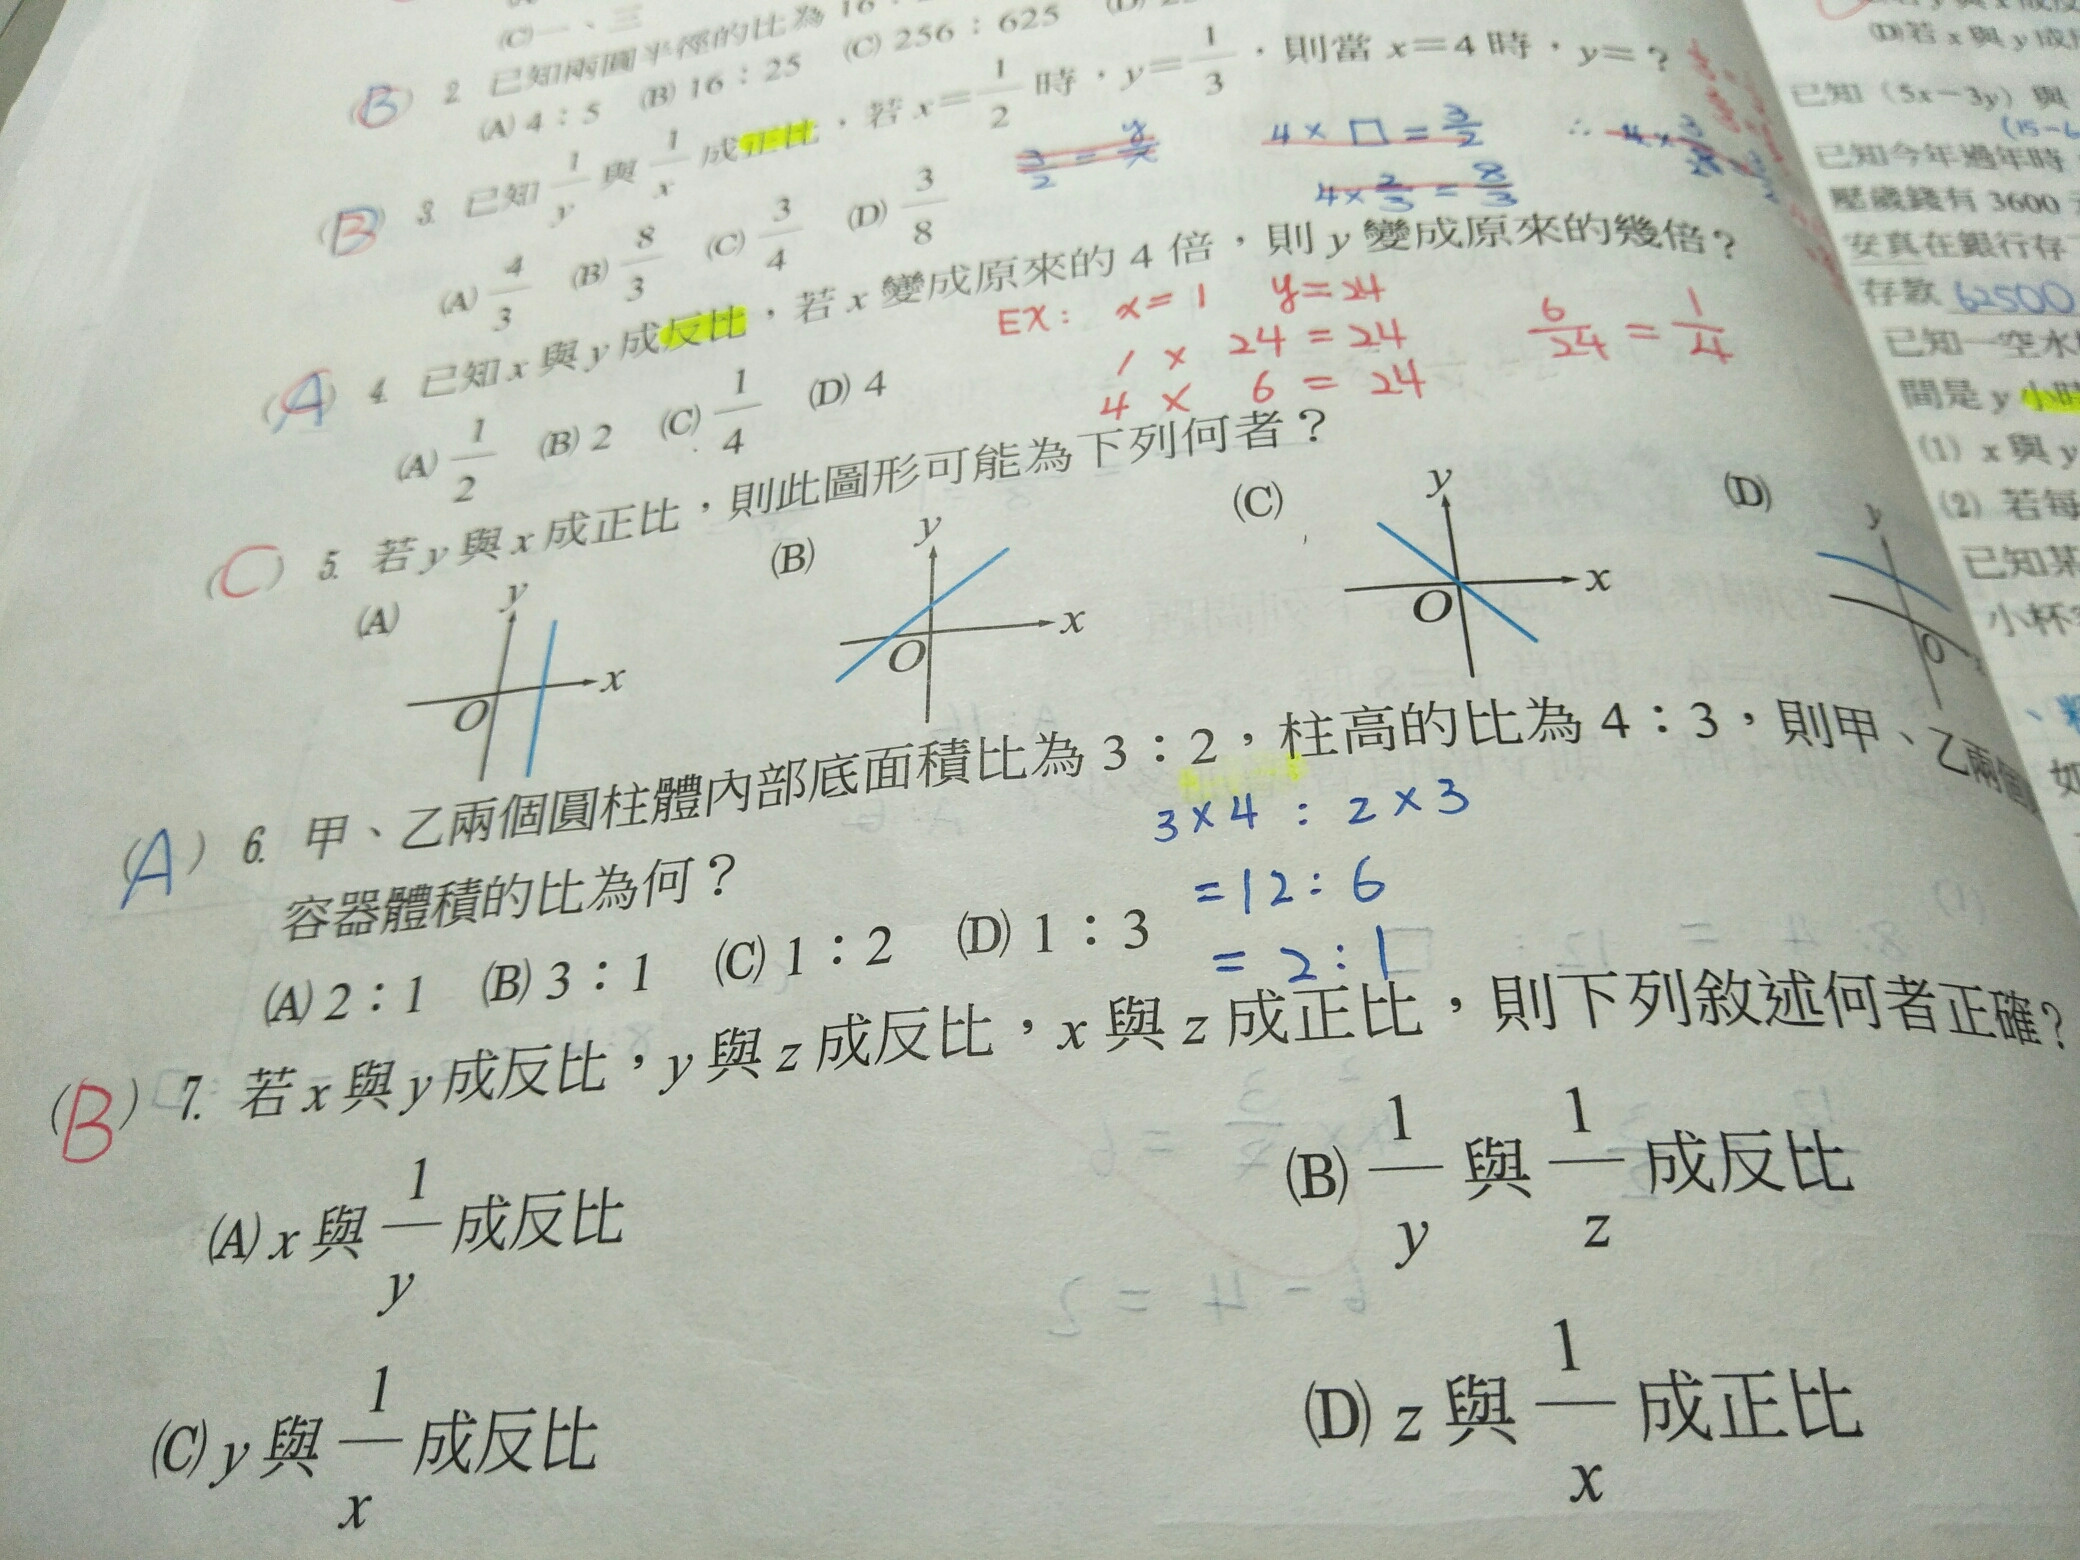 (C)一、三
(B) 2. 已知兩圓半徑的比為 16：
(A) 4：5 (B) 16：25 (C) 256：625
(B) 3. 已知 1/y 與 1/x 成正比，若 x＝1/2 時，y＝1/3，則當 x＝4 時，y＝？
3/2 = y/x
4 × □ = 3/2
4 × 2/3 = 8/3
(A) 4/3 (B) 8/3 (C) 3/4 (D) 3/8
(A) 4. 已知 x 與 y 成反比，若 x 變成原來的 4 倍，則 y 變成原來的幾倍？
EX: x = 1 y = 24
1 × 24 = 24
4 × 6 = 24
6/24 = 1/4
(A) 1/2 (B) 2 (C) 1/4 (D) 4
(C) 5. 若 y 與 x 成正比，則此圖形可能為下列何者？
(A) y x O
(B) y x O
(C) y x O
(D) y O
(A) 6. 甲、乙兩個圓柱體內部底面積比為 3：2，柱高的比為 4：3，則甲、乙兩個
容器體積的比為何？
3×4 : 2×3
=12: 6
= 2:1
(A) 2：1 (B) 3：1 (C) 1：2 (D) 1：3
(B) 7. 若 x 與 y 成反比，y 與 z 成反比，x 與 z 成正比，則下列敘述何者正確？
(A) x 與 1/y 成反比
(B) 1/y 與 1/z 成反比
(C) y 與 1/x 成反比
(D) z 與 1/x 成正比
(D)若 x 與 y 成
已知（5x－3y）與
已知今年過年時
壓歲錢有 3600
安真在銀行存
存款 62500
已知一空水
間是 y 小時
(1) x 與 y
(2) 若每
已知某
小杯